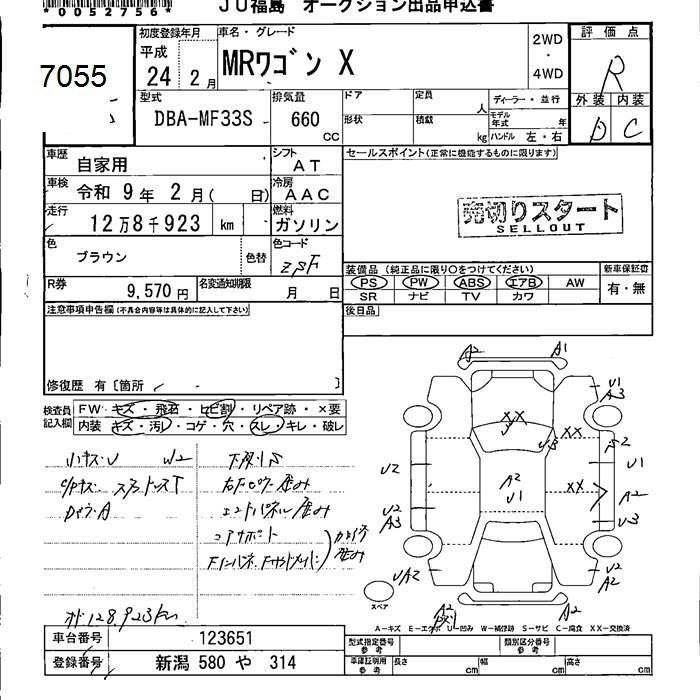 *0052756*
JU福島 オークション出品申込書
7055
初度登録年月
平成
24 2月
車名・グレード
MRワゴン X
2WD
・
4WD
評価点
R
型式
DBA-MF33S
排気量
660
CC
ドア
定員
人
形状
積載
kg
ディーラー・並行
モデル年式
年
ハンドル 左・右
外装 内装
D C
車歴
自家用
シフト
AT
セールスポイント(正常に機能するものに限ります)
車検
令和 9年 2月( 日)
冷房
AAC
走行
12万8千923 km
燃料
ガソリン
売切りスタート
SELLOUT
色
ブラウン
色替
色コード
ZSF
装備品 (純正品に限り○をつけてください)
PS PW ABS エアB AW
SR ナビ TV カワ
新車保証書
有・無
R券
9,570円
名変通知期限
月 日
後日品
注意事項申告欄(不具合内容等は具体的に記入して下さい)
修復歴 有〔箇所 〕
検査員記入欄
FW キズ・飛石・ヒビ割・リペア跡・×要
内装 キズ・汚レ・コゲ・穴・スレ・キレ・破レ
小キズU W2
下廻りS
エンドパネル歪み
コアサポート
A2 A1
U1
A3
XX
U
U3
XX
S2
U2
A2
U1
U1
XX
A2
U2
A3
U3
UA2
U2
A2
スペア
A2
A2
A-キズ E-エクボ U-凹み W-補修跡 S-サビ C-腐食 XX-交換済
128,923km
車台番号 123651
登録番号 新潟 580 や 314
型式指定番号
参考
類別区分番号
参考
車庫証明用
参考
長さ
cm
幅
cm
高さ
cm